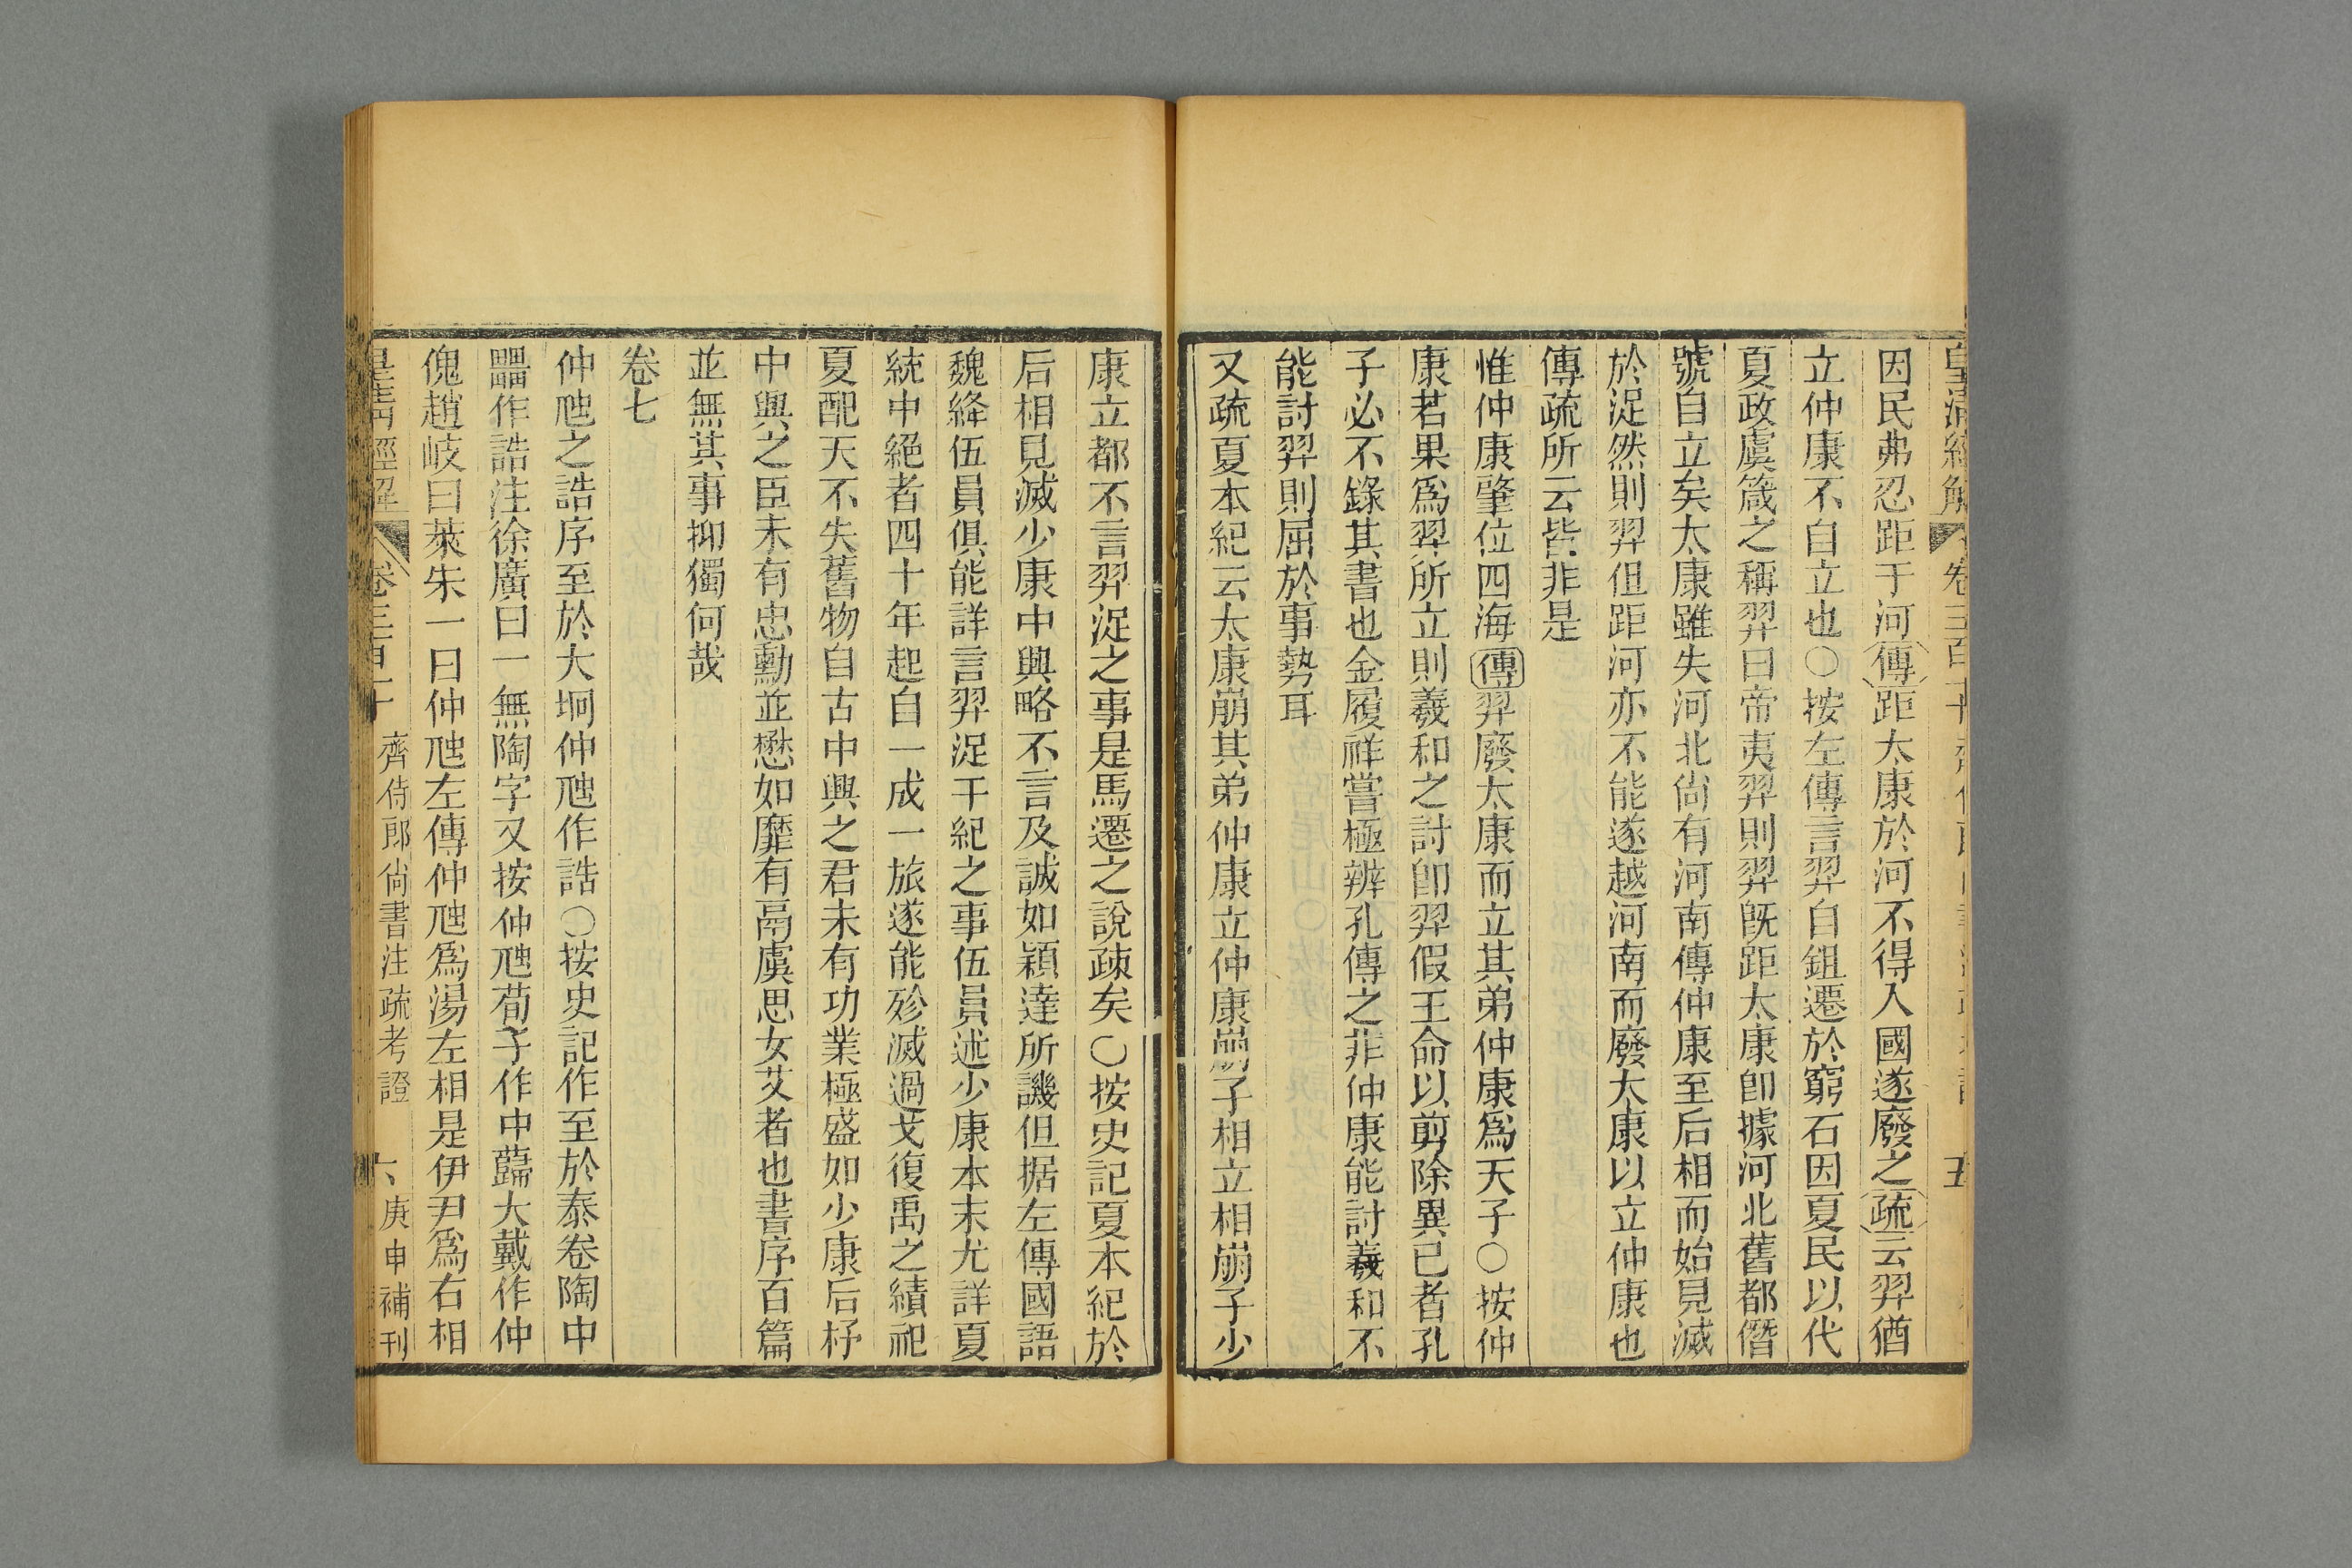 皇清經解 卷三百十 五
因民弗忍距于河傳距太康於河不得入國遂廢之疏云羿猶
立仲康不自立也○按左傳言羿自鉏遷於窮石因夏民以代
夏政虞箴之稱羿曰帝夷羿則羿旣距太康卽據河北舊都僭
號自立矣太康雖失河北尙有河南傳仲康至后相而始見滅
於浞然則羿但距河亦不能遂越河南而廢太康以立仲康也
傳疏所云皆非是
惟仲康肇位四海傳羿廢太康而立其弟仲康爲天子○按仲
康若果爲羿所立則羲和之討卽羿假王命以剪除異己者孔
子必不錄其書也金履祥嘗極辨孔傳之非仲康能討羲和不
能討羿則屈於事勢耳
又疏夏本紀云太康崩其弟仲康立仲康崩子相立相崩子少
康立都不言羿浞之事是馬遷之說疎矣○按史記夏本紀於
后相見滅少康中興略不言及誠如穎達所譏但据左傳國語
魏絳伍員俱能詳言羿浞干紀之事伍員述少康本末尤詳夏
統中絕者四十年起自一成一旅遂能殄滅過戈復禹之績祀
夏配天不失舊物自古中興之君未有功業極盛如少康后杼
中興之臣未有忠勳並懋如靡有鬲虞思女艾者也書序百篇
並無其事抑獨何哉
卷七
仲虺之誥序至於大坰仲虺作誥○按史記作至於泰卷陶中
𤳹作誥注徐廣曰一無陶字又按仲虺荀子作中蘬大戴作仲
傀趙岐曰萊朱一曰仲虺左傳仲虺爲湯左相是伊尹爲右相
皇淸經解 卷三百十 齊侍郎尙書注疏考證 六 庚申補刊